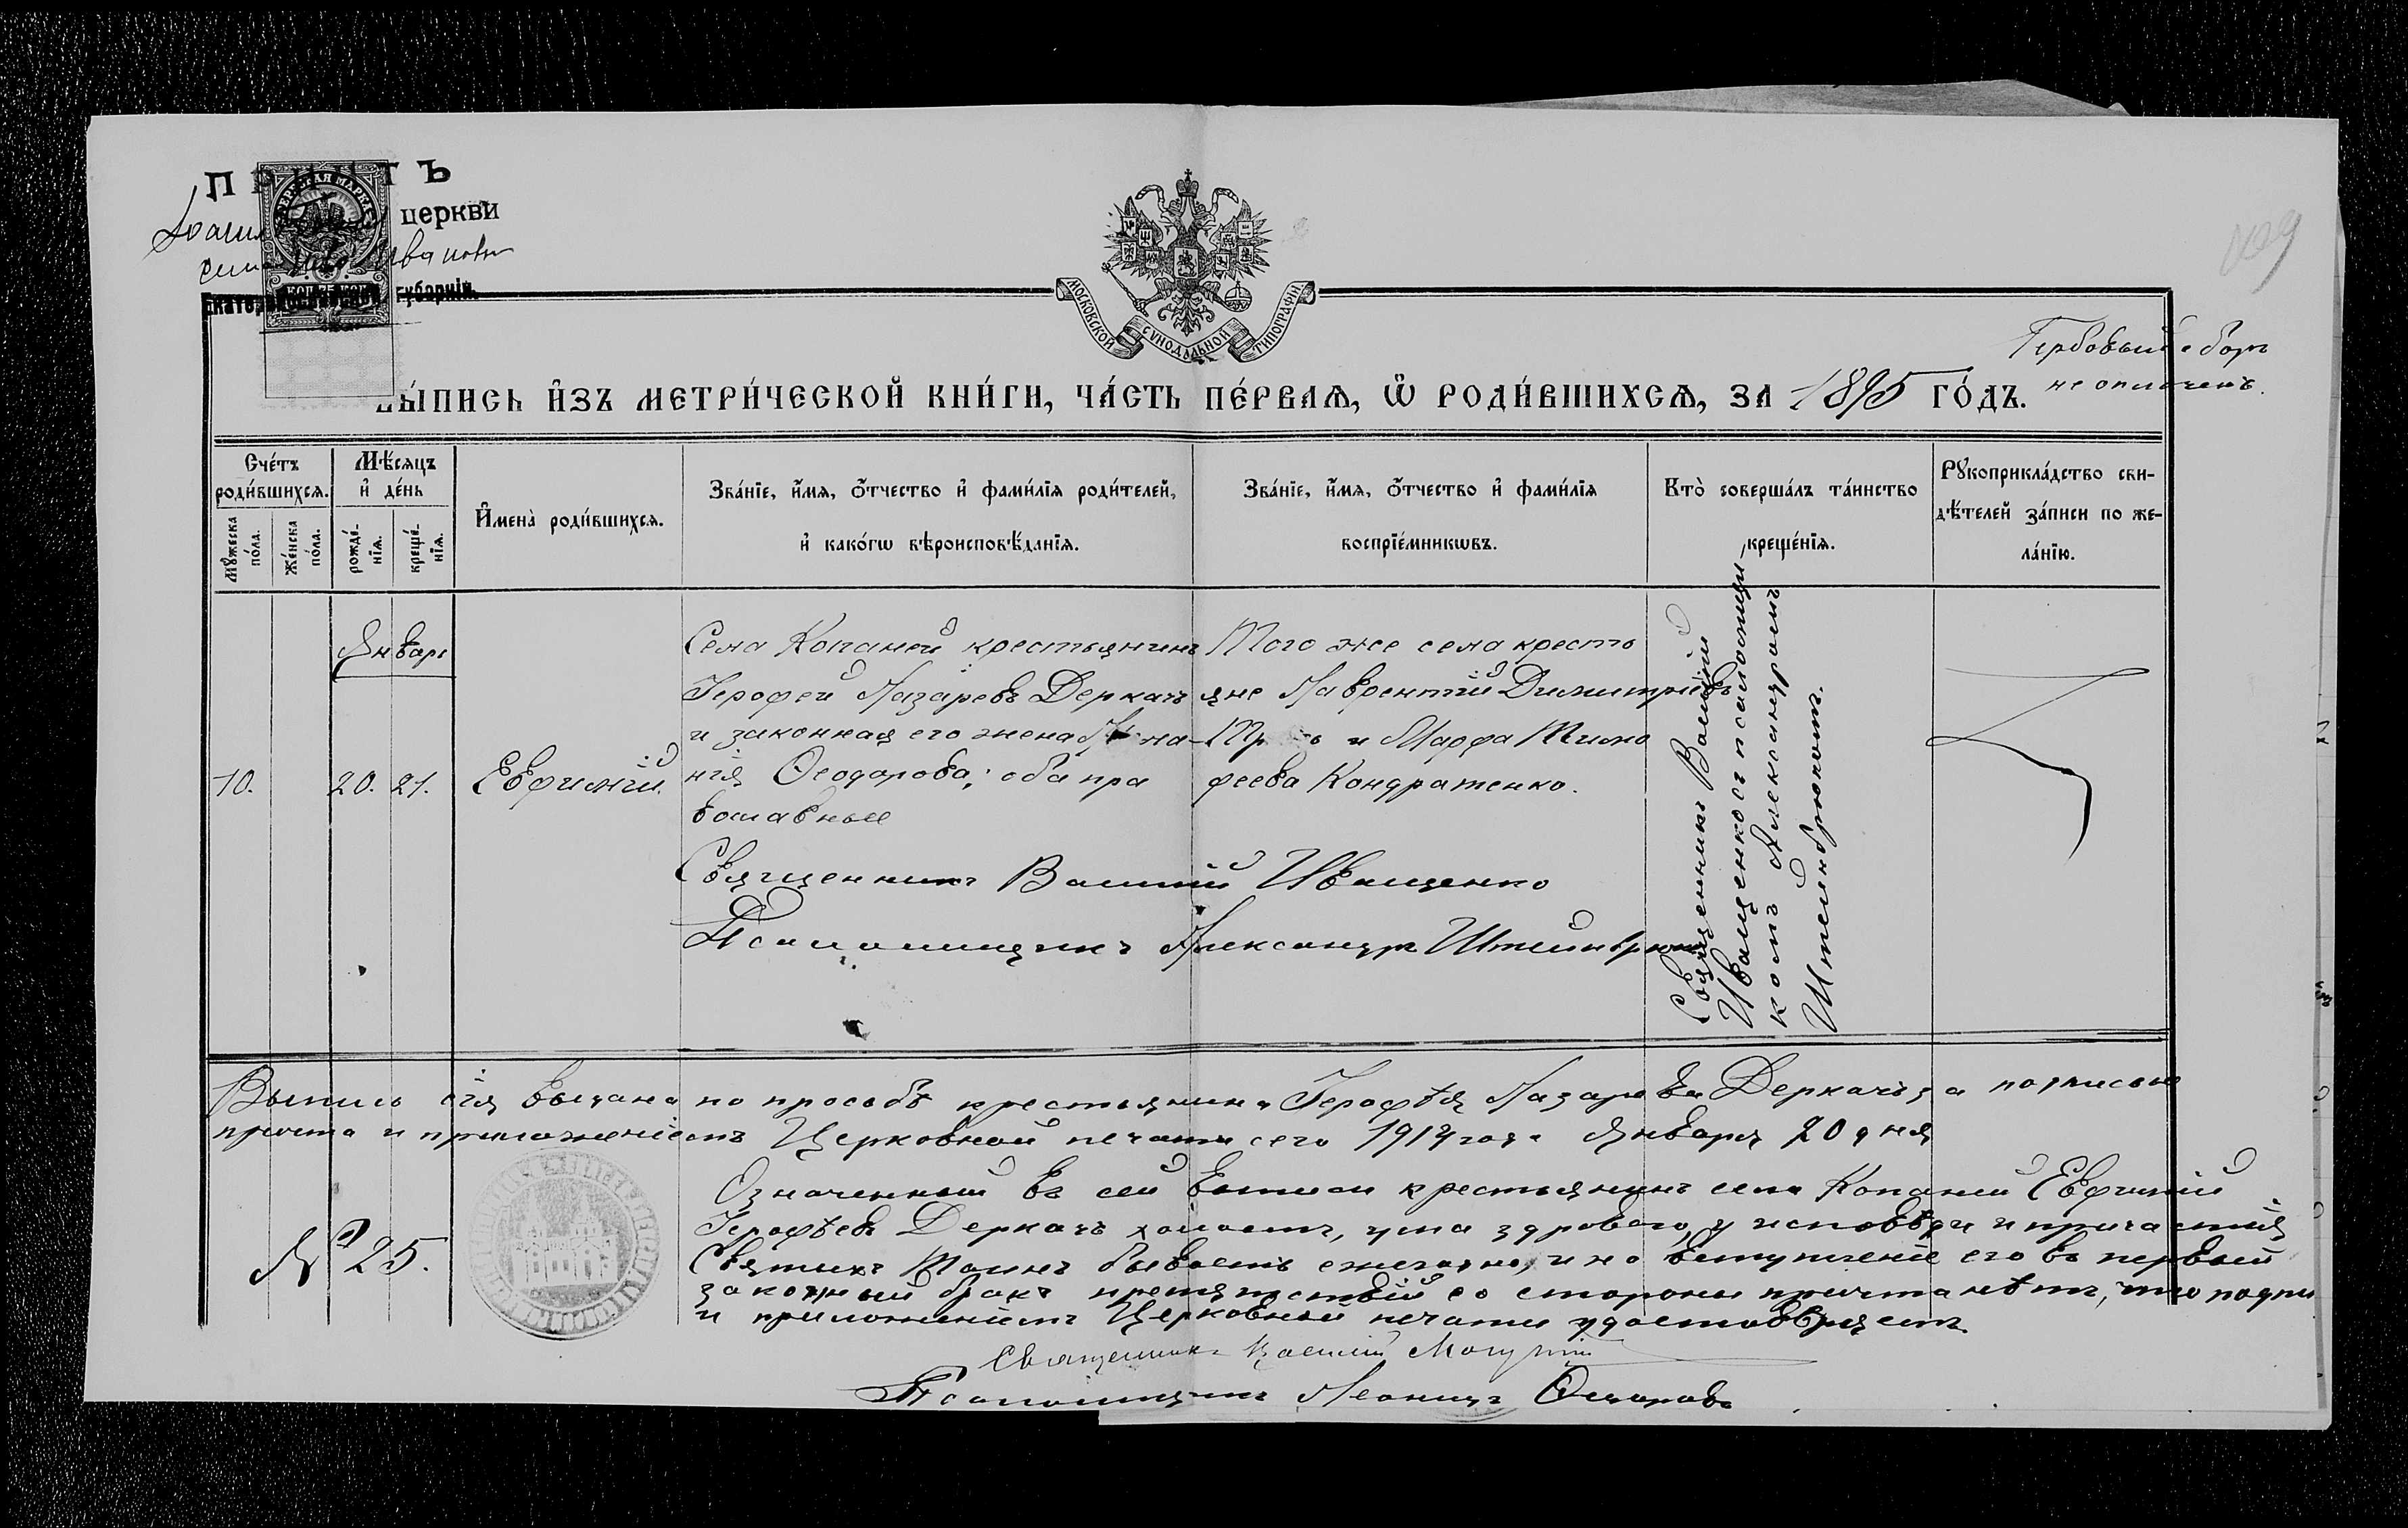 ПРИЧТЪ
церкви
губерніи.
МОСКОВСКОЙ СѴНОДАЛЬНОЙ ТИПОГРАФІИ
Гербовый сборъ
не оплаченъ.
ВЫ́ПИСЬ И҆ЗЪ МЕТРИ́ЧЕСКОЙ КНИ́ГИ, ЧА́СТЬ ПЕ́РВАѦ, Ѽ РОДИ́ВШИХСѦ, ЗА 1895 ГО́ДЪ.
Сче́тъ роди́вшихсѧ.
Мꙋ́жеска по́ла.
Же́нска по́ла.
Мѣ́сѧцъ и҆ де́нь
рожде́нїѧ.
креще́нїѧ.
И҆мена̀ роди́вшихсѧ.
Зва́нїе, и҆́мѧ, ѻ҆́тчество и҆ фами́лїѧ роди́телей,
и҆ како́гѡ вѣроисповѣ́данїѧ.
Зва́нїе, и҆́мѧ, ѻ҆́тчество и҆ фами́лїѧ
воспрїе́мникѡвъ.
Кто̀ соверша́лъ та́инство
креще́нїѧ.
Рꙋкоприкла́дство сви-
дѣ́телей за́писи по же-
ла́нїю.
Январь
10.
20. 21.
Евфимій.
Села Копаней крестьянинъ
Іерофей Лазаревъ Деркачъ
и законная его жена
нія Ѳеодорова; оба пра
вославные
Того же села кресть
яне Лаврентій Димитріевъ
и Марфа Тимо
феева Кондратенко.
Священникъ Василій
Иващенко съ псаломщи
комъ Александромъ
Штейнбрюкомъ.
Священникъ Василій Иващенко
Псаломщикъ Александръ Штейнбрюкъ
Выпись сія выдана по просьбѣ крестьянина Іерофѣя Лазарева Деркачъ за подписью
причта и приложеніемъ Церковной печати сего 1914 года Января 20 дня
№ 25.
Означенный въ сей выписи крестьянинъ села Копаней Евфимій
Іерофѣевъ Деркачъ холостъ, ума здроваго, у исповѣди и причастія
Святыхъ Таинъ бываетъ ежегодно, и на вступленіе его въ первый
законный бракъ препятствій со стороны причта нѣтъ, что подпи
и приложеніемъ Церковной печати удостовѣряемъ.
Священникъ Василій
Псаломщикъ Леонидъ